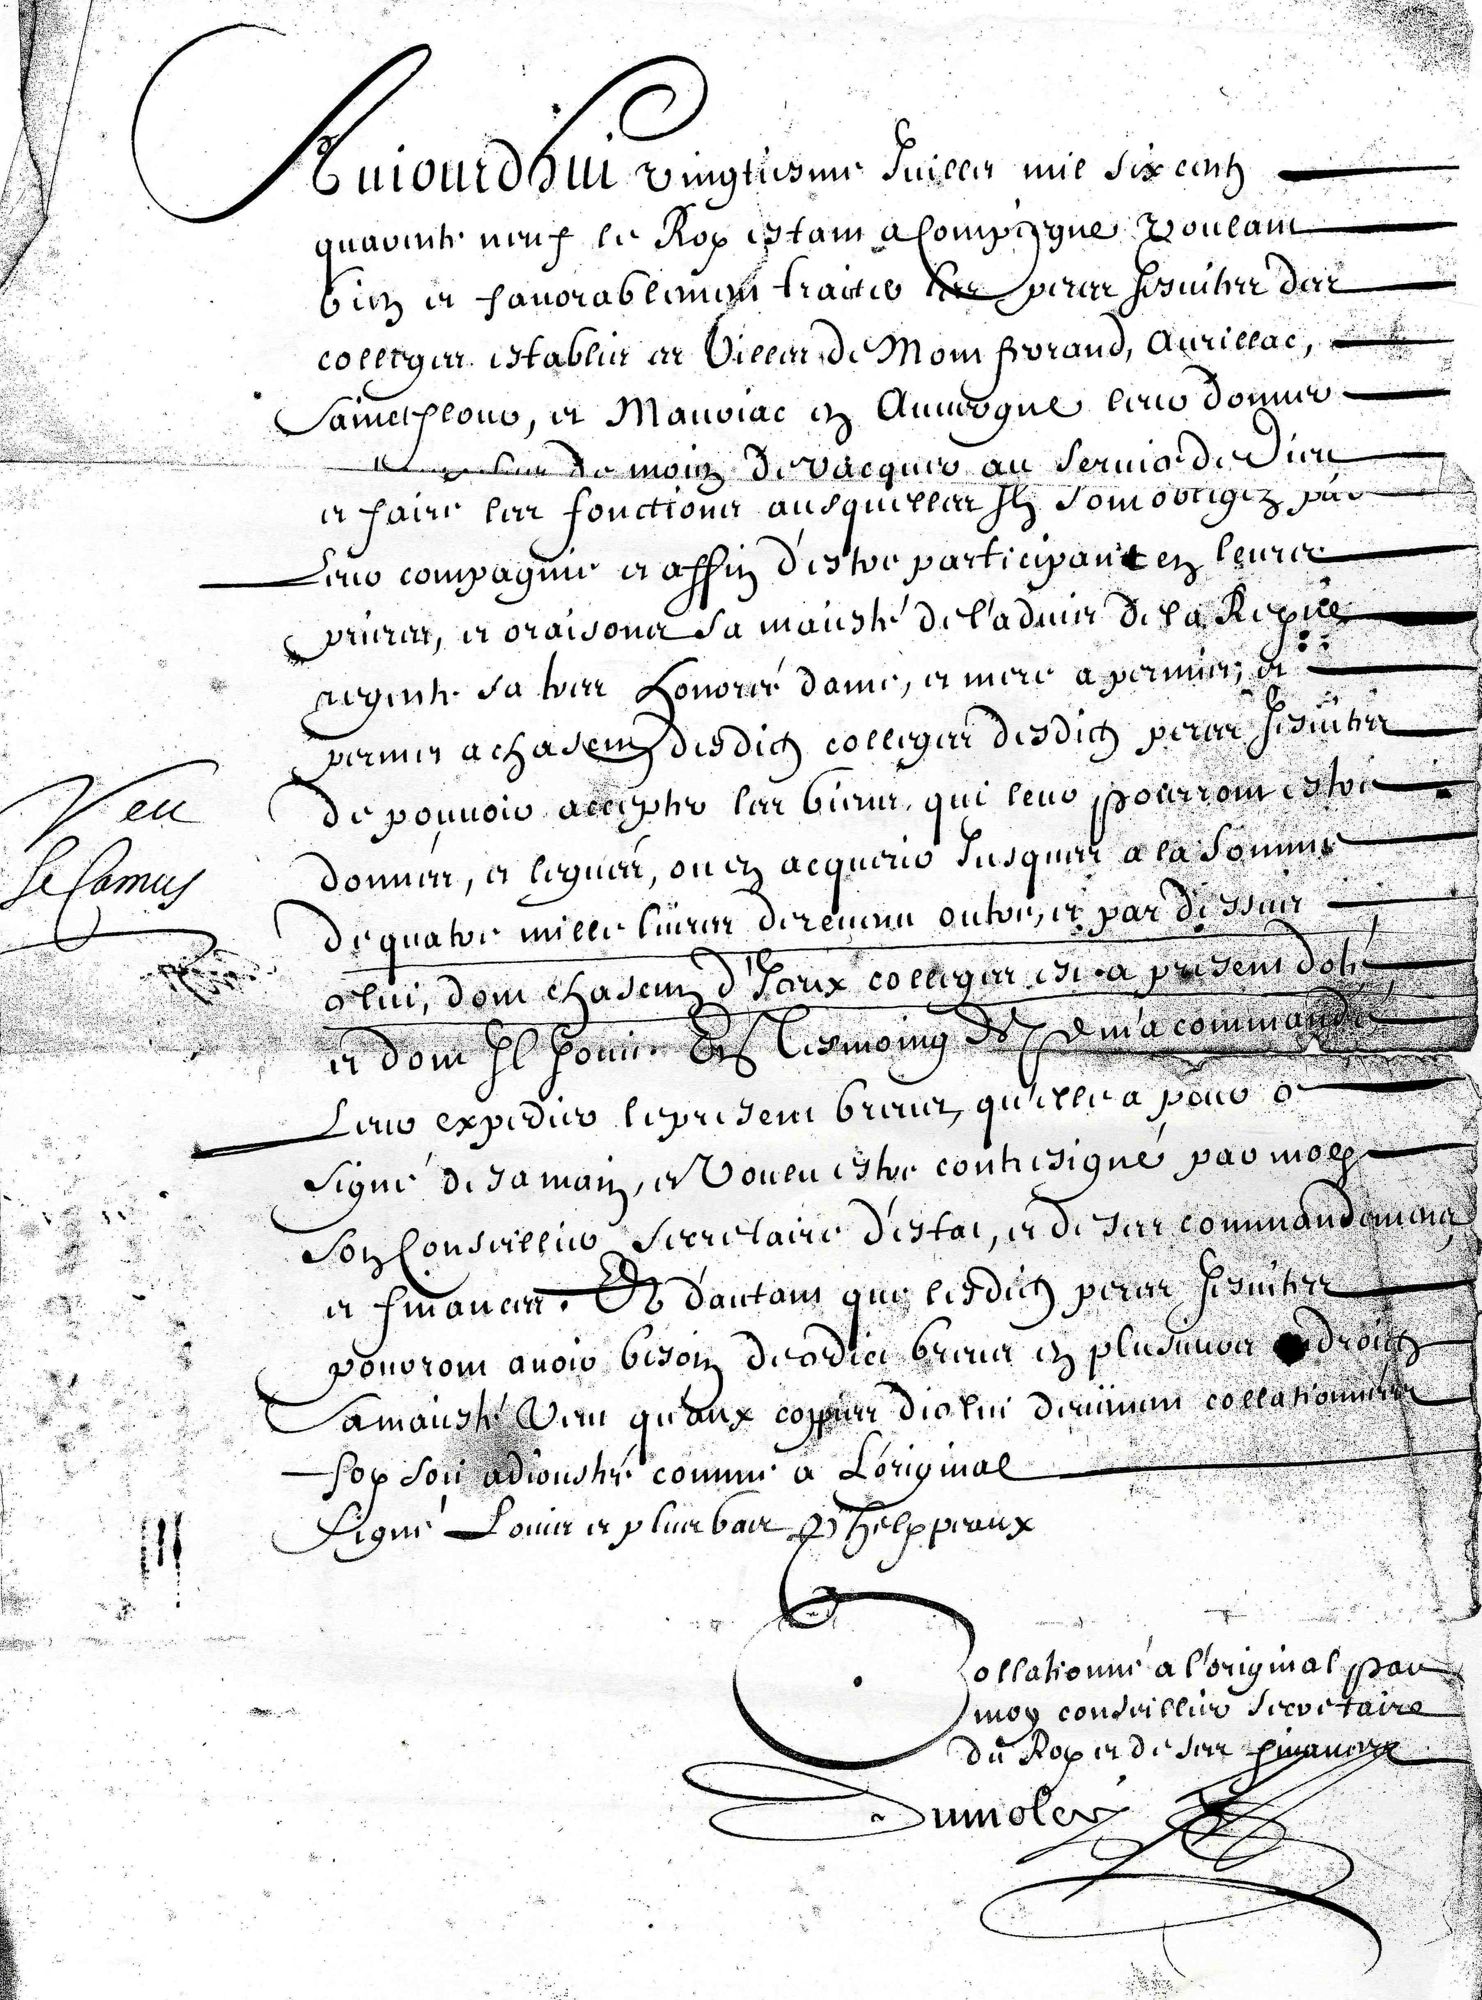 Auiourdhui vingtiesme Juillet mil six centz
quarente neuf le Roy estant a Compiegne voulant
bien et favorablement traicter les peres Jesuites des
colleges establis es villes de Montferrand, Aurillac,
Sainct flour, et Mauriac en Auvergne leur donner
de moien de vacquer au service de Dieu
et faire les fonctions ausquelles Ilz sont obligez par
leur compagnie et affin d'estre participant en leurs
prieres, et oraisons sa maiesté de l'advis de la Reyne
regente sa tres honorée dame, et mere a permis, et
permet a chascun desdictz colleges desdictz peres Jesuites
de pouvoir accepter les biens qui leur pourront estre
donnés, et legués, ou en acquerir Jusques a la somme
de quatre mille livres de revenu outre, et par dessus
celui, dont chascun d'Iceux colleges est a present doté
et dont Il Jouit. En tesmoing de quoy elle m'a commandé
leur expedier le present brevet, qu'elle a pour ce
signé de sa main, et voulu estre contresigné par moy
son Conseiller secretaire d'estat, et de ses commandemens
et finances. Et d'autant que lesdictz peres Jesuites
pourront avoir besoin de cedict brevet en plusieurs endroictz
sa maiesté veut qu'aux coppies diceluy deuëment collationnées
foy soit adioustée comme a L'original
Signé Louis et plus bas Phelyppeaux
Veu
Le Camus
Collationné a l'original par
moy conseiller secretaire
du Roy et de ses finances
Dumoley